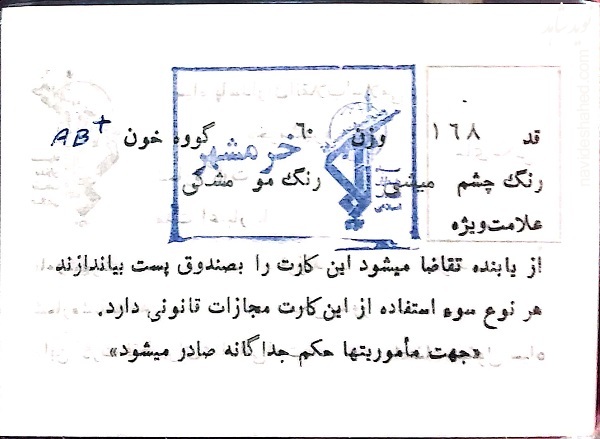 قد ۱۶۸ وزن ۶۰ گووه خون AB+
خرمشهر
رنگ چشم میشی رنگ مو مشکی
علامت‌ویژه
از یابنده تقاضا میشود این کارت را بصندوق پست بیاندازند
هر نوع سوء استفاده از این کارت مجازات قانونی دارد.
«جهت مأموریتها حکم جداگانه صادر میشود»